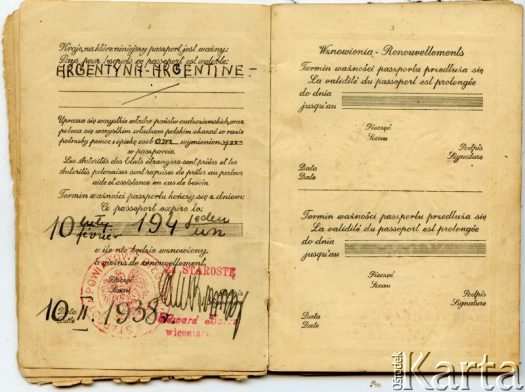 Kraje, na które niniejszy paszport jest ważny:
Pays pour lesquels ce passeport est valable:
ARGENTYNA-ARGENTINE-
Uprasza się wszystkie władze państw cudzoziemskich, oraz
poleca się wszystkim władzom polskim okazać w razie
potrzeby pomoc i opiekę osobom wymienionym
w paszporcie.
Les Autorités des Etats étrangers sont priées et les
Autorités polonaises sont requises de prêter au porteur
aide et assistance en cas de besoin
Termin ważności paszportu kończy się z dniem:
Ce passeport expire le:
10 luty février 194 jeden un
o ile nie będzie wznowiony
à moins de renouvellement
Pieczęć
Sceau
ZA STAROSTĘ
Edward
wicestarosta
10 II 1938
Data
Date
Wznowienia - Renouvellements
Termin ważności paszportu przedłuża się
La validité du passeport est prolongée
do dnia
jusqu'au
Pieczęć
Sceau
Podpis
Signature
Data
Date
Termin ważności paszportu przedłuża się
La validité du passeport est prolongée
do dnia
jusqu'au
Pieczęć
Sceau
Podpis
Signature
Data
Date
ośrodek
Karta